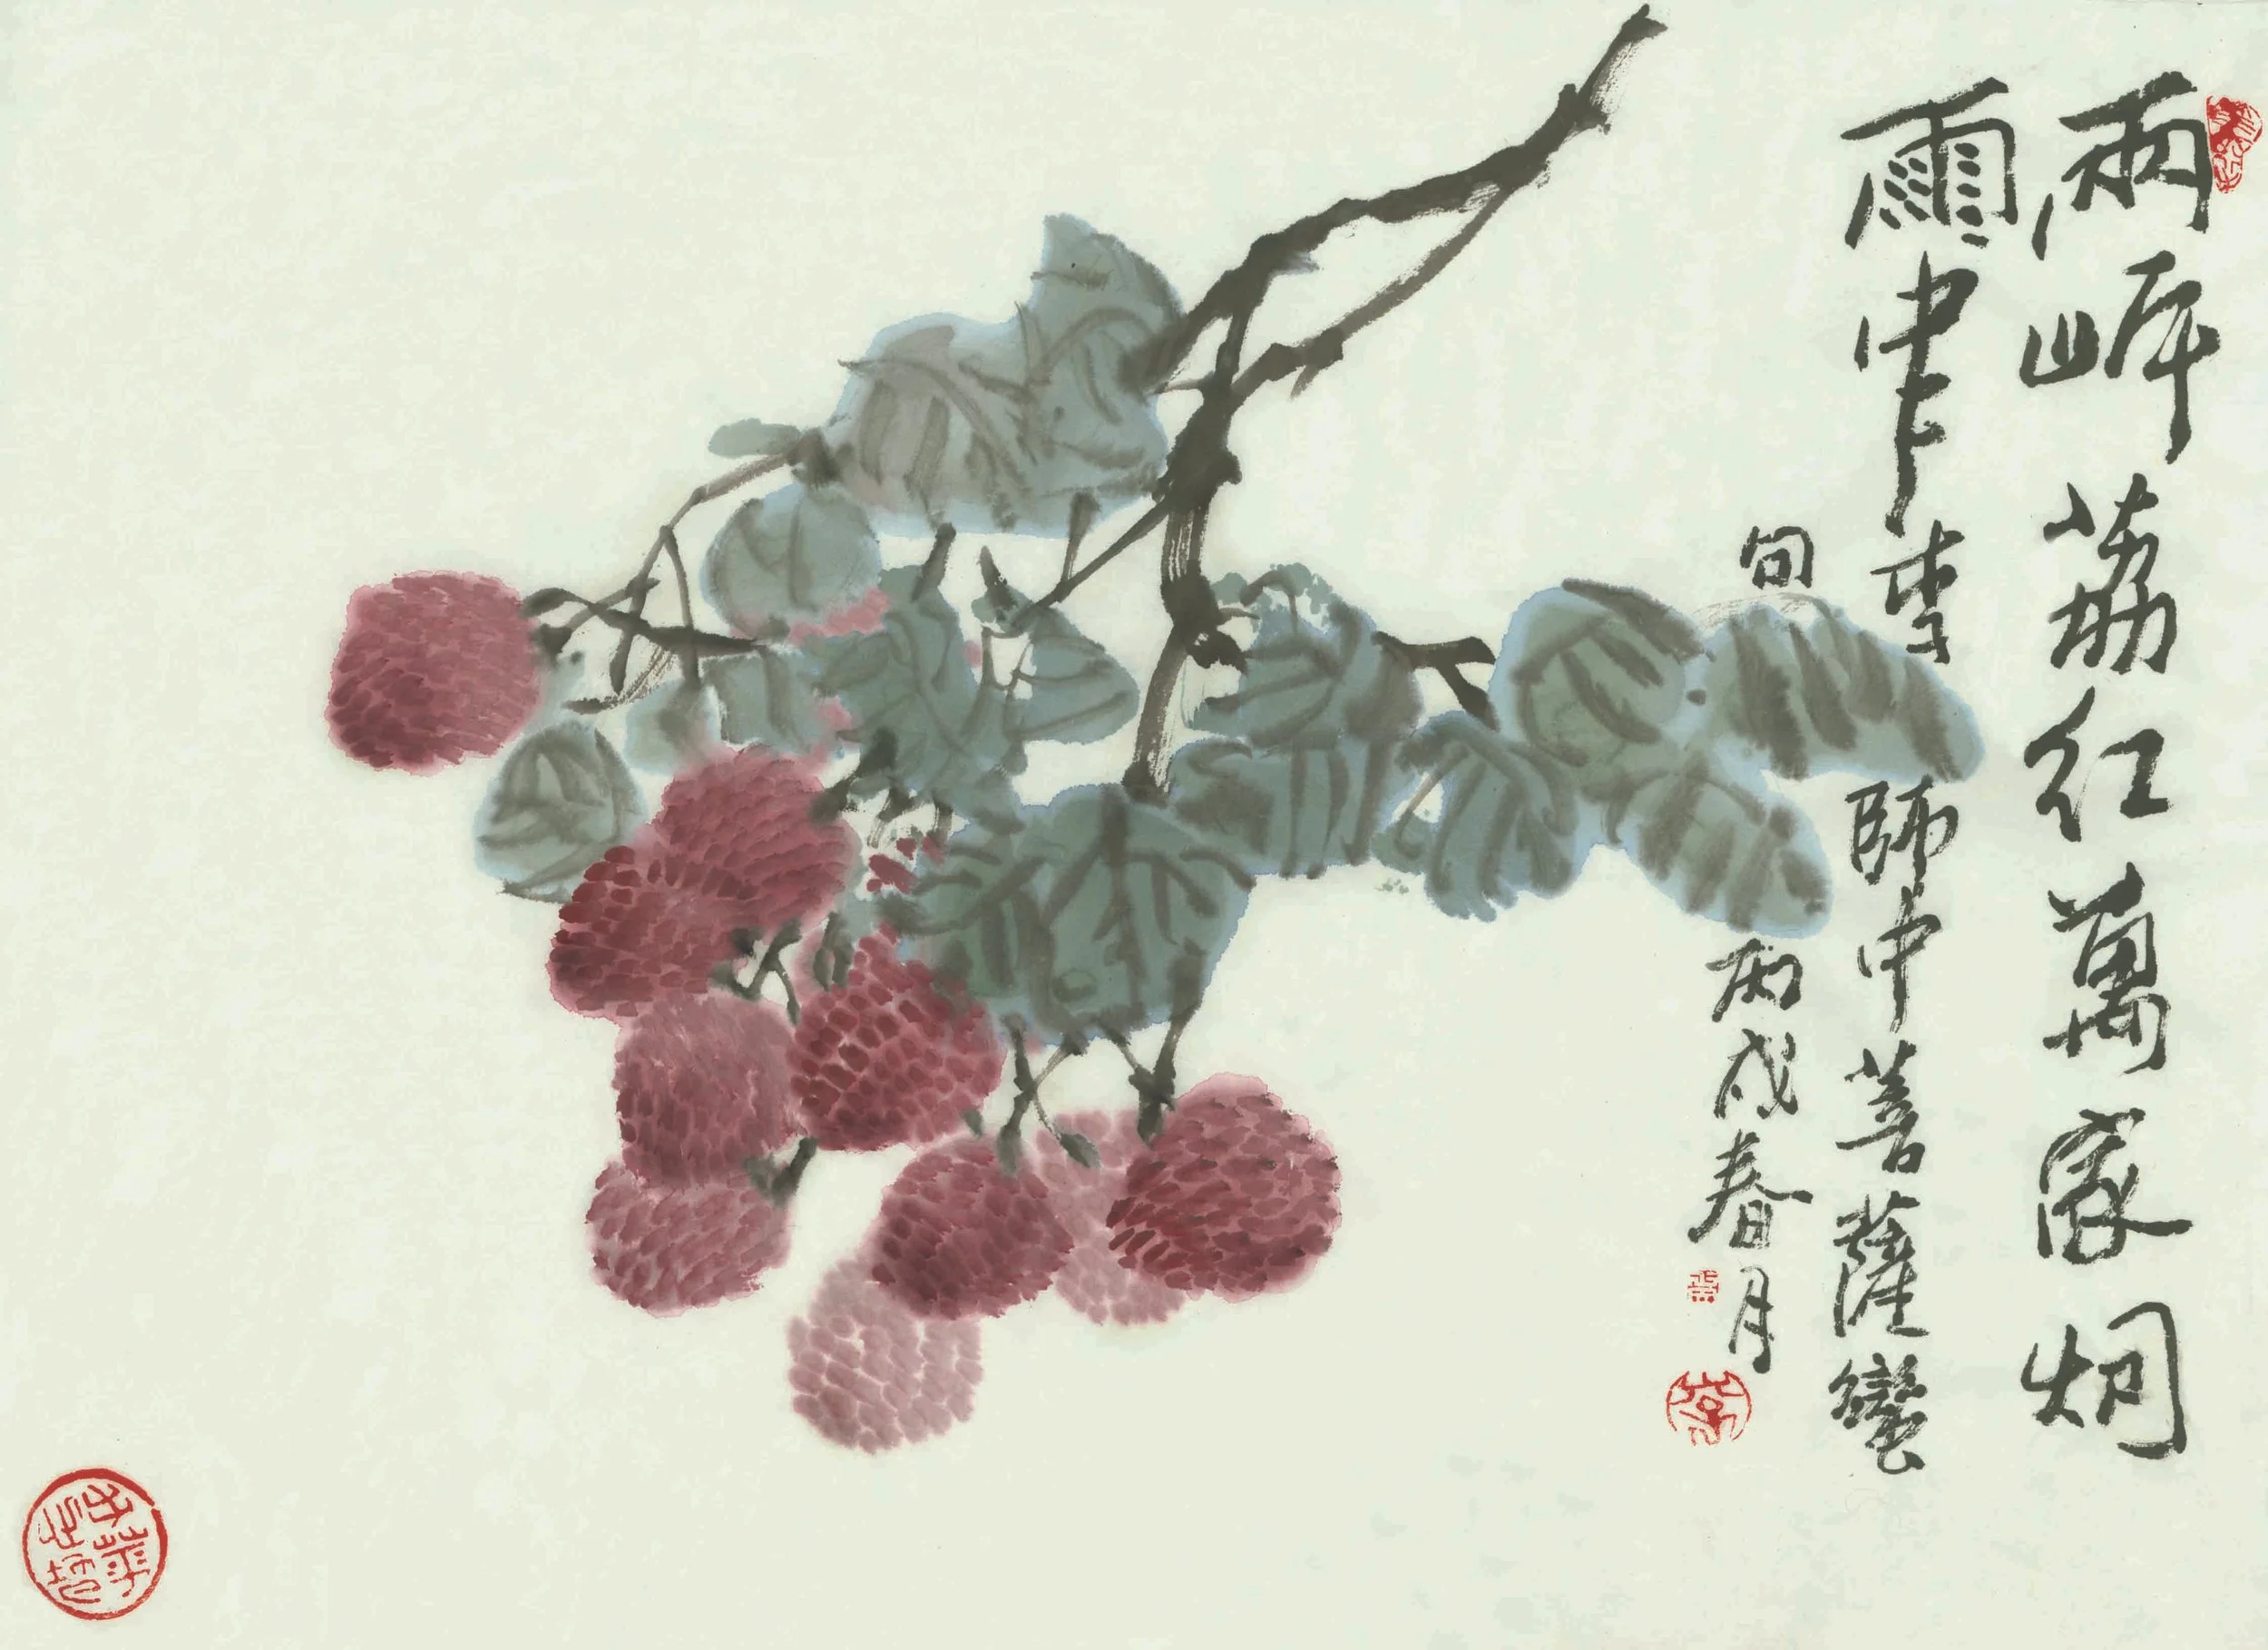 兩岸荔紅萬家烟
雨中李師中菩薩蠻
句丙戌春月